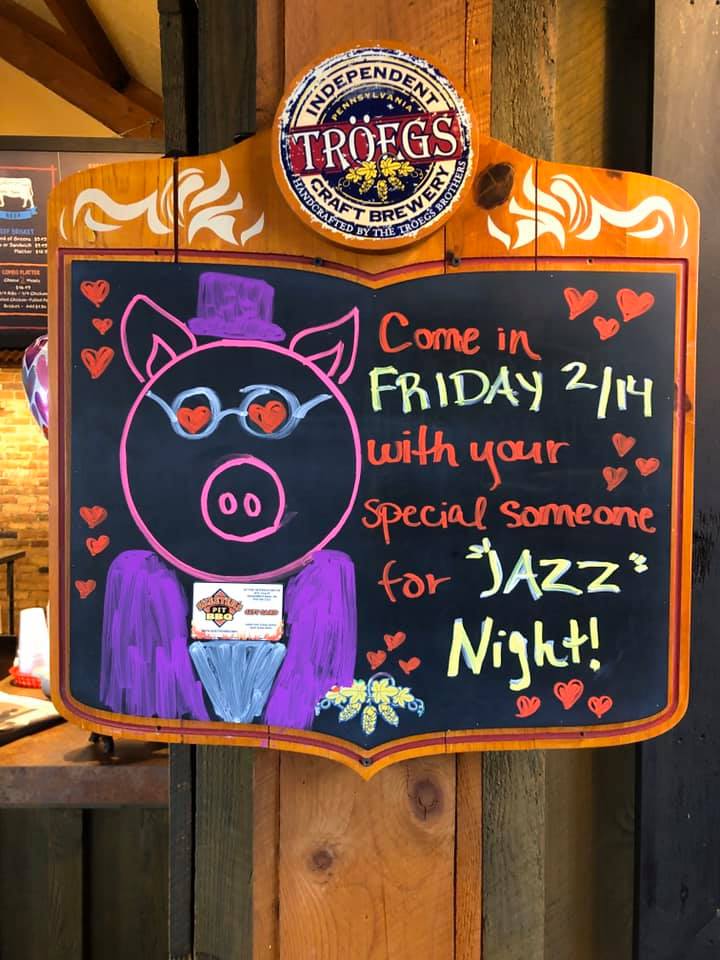 INDEPENDENT
PENNSYLVANIA
TRÖEGS
CRAFT BREWERY
HANDCRAFTED BY THE TRÖEGS BROTHERS
Come in
FRIDAY 2/14
with your
special someone
for "JAZZ"
Night!
PIT
BBQ
GIFT CARD
BEEF
COMBO PLATTER